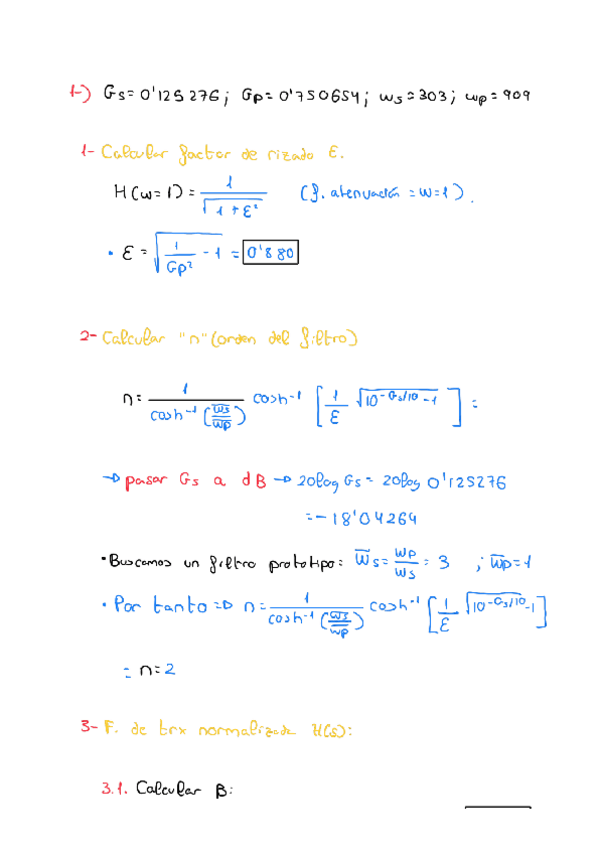 1-) Gs=0'125276; Gp=0'750654; ws=303; wp=909
1- Calcular factor de rizado ε.
H(w=1) = 1/√(1+ε²) (f. atenuación = w=1).
• ε = √(1/Gp² - 1) = 0'880
2- Calcular "n" (orden del filtro)
n = 1/cosh⁻¹(w̅s/w̅p) cosh⁻¹ [1/ε √(10^(-Gs/10) - 1)] =
→ pasar Gs a dB → 20log Gs = 20log 0'125276
= -18'04264
• Buscamos un filtro prototipo: w̅s = wp/ws = 3 ; w̅p=1
• Por tanto ⇒ n = 1/cosh⁻¹(w̅s/w̅p) cosh⁻¹ [1/ε √(10^(-Gs/10) - 1)]
= n=2
3- F. de trx normalizada H(s):
3.1. Calcular β: